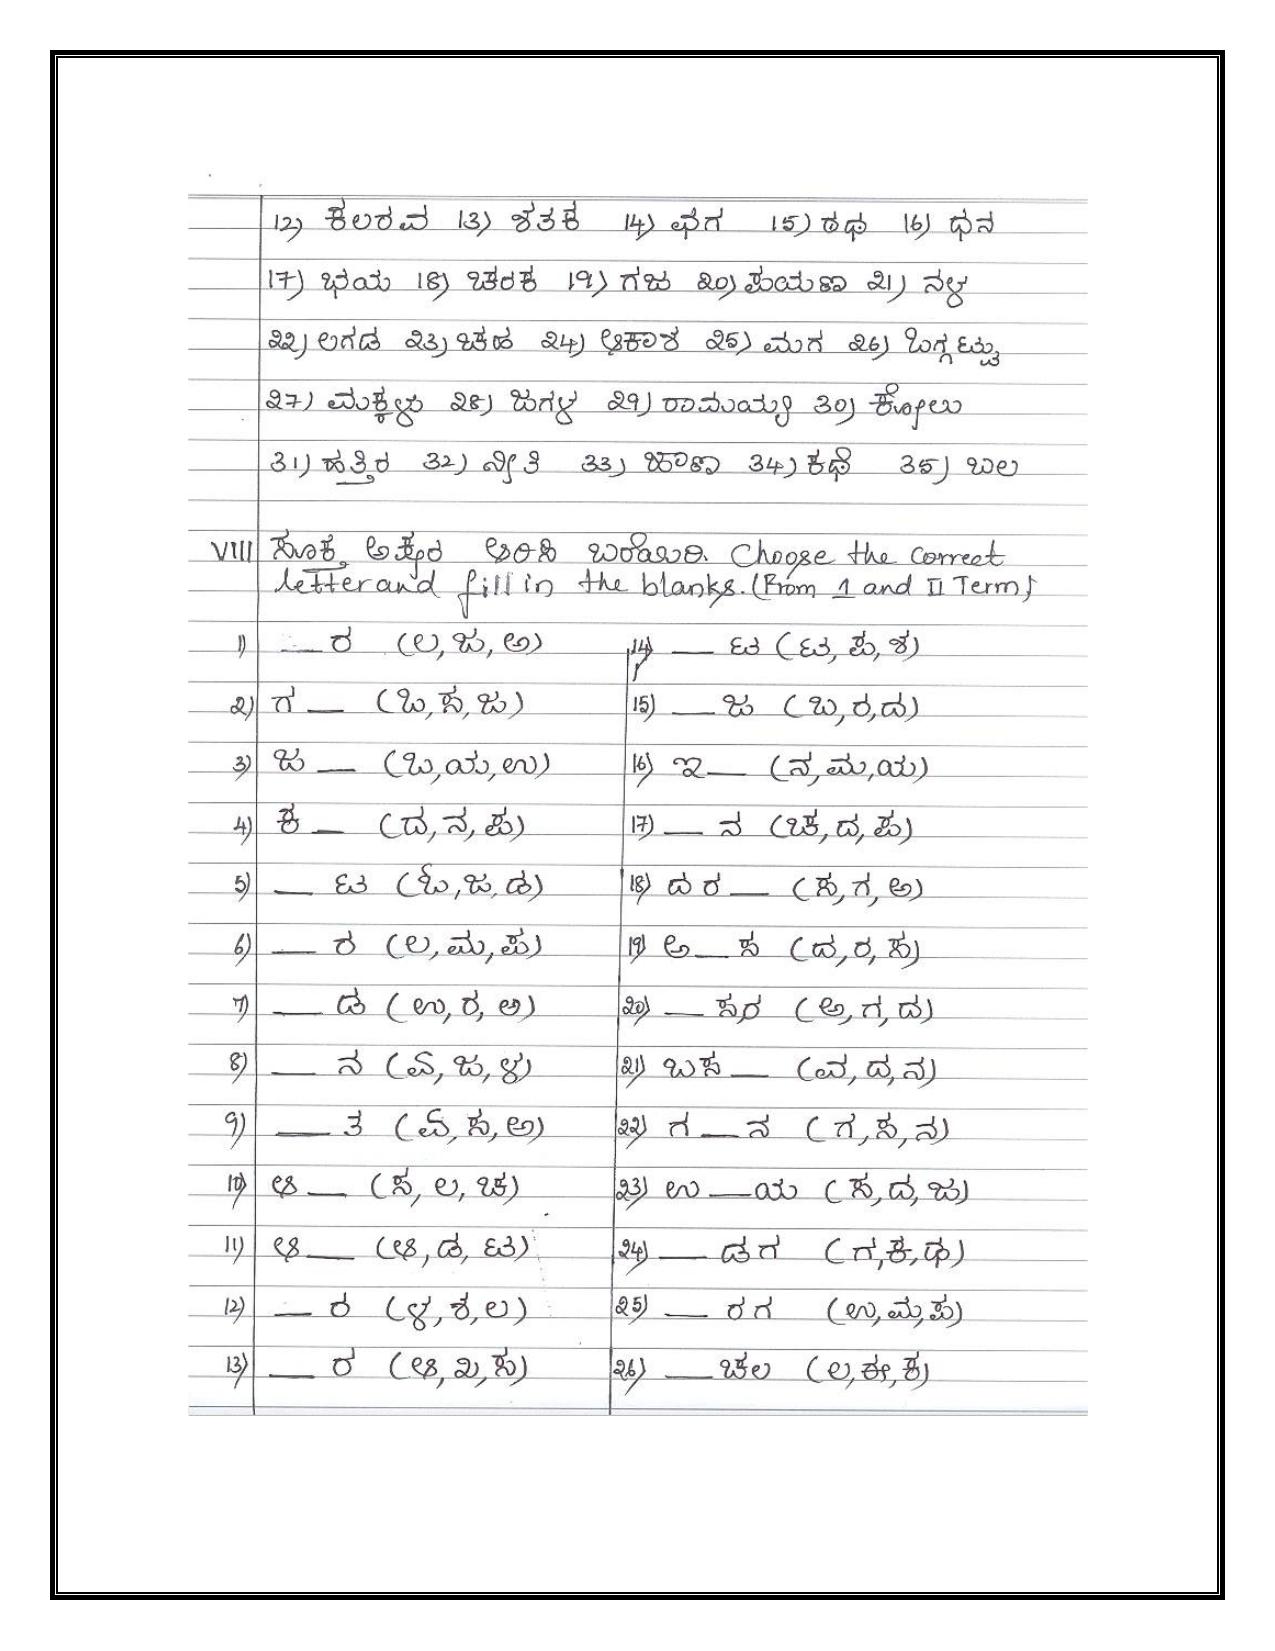 12) ಕಲರವ 13) ಶತಕ 14) ಘಗ 15) ರಥ 16) ಧನ
17) ಭಯ 18) ಚರಕ 19) ಗಜ ೨0) ಪಯಣ ೨1) ನಳ
೨೨) ಲಗಡ ೨3) ಚಹ ೨4) ಆಕಾಶ ೨5) ಮಗ ೨6) ಒಗ್ಗಟ್ಟು
೨7) ಮಕ್ಕಳು ೨8) ಜಗಳ ೨9) ರಾಮಯ್ಯ 30) ಕೋಲು
31) ಹತ್ತಿರ 3೨) ನೀತಿ 33) ಜಾಣ 34) ಕಥೆ 35) ಬಲ
VIII ಸೂಕ್ತ ಅಕ್ಷರ ಆರಿಸಿ ಬರೆಯಿರಿ. Choose the correct
letter and fill in the blanks. (From I and II Term)
1) __ ರ (ಲ, ಜ, ಅ)
೨) ಗ __ (ಒ, ಸ, ಜ)
3) ಜ __ (ಒ, ಯ, ಉ)
4) ಕ __ (ದ, ನ, ಪ)
5) __ ಟ (ಓ, ಜ, ಡ)
6) __ ರ (ಲ, ಮ, ಪ)
7) __ ಡ (ಉ, ರ, ಅ)
8) __ ನ (ಏ, ಜ, ಳ)
9) __ ತ (ಏ, ಸ, ಅ)
10) ಆ __ (ಸ, ಲ, ಚ)
11) ಆ __ (ಆ, ಡ, ಟ)
1೨) __ ರ (ಳ, ಶ, ಲ)
13) __ ರ (ಆ, ಖ, ಸ)
14) __ ಟ (ಟ, ಪ, ಶ)
15) __ ಜ (ಒ, ರ, ದ)
16) ಇ __ (ನ, ಮ, ಯ)
17) __ ನ (ಚ, ದ, ಪ)
18) ದ ರ __ (ಸ, ಗ, ಅ)
19) ಅ __ ಸ (ದ, ರ, ಸ)
೨0) __ ಸರ (ಅ, ಗ, ದ)
೨1) ಬಸ __ (ವ, ದ, ನ)
೨೨) ಗ __ ನ (ಗ, ಸ, ನ)
೨3) ಉ __ ಯ (ಸ, ದ, ಜ)
೨4) __ ಡಗ (ಗ, ಕ, ಥ)
೨5) __ ರಗ (ಉ, ಮ, ಪ)
೨6) __ ಚಲ (ಲ, ಈ, ಕ)